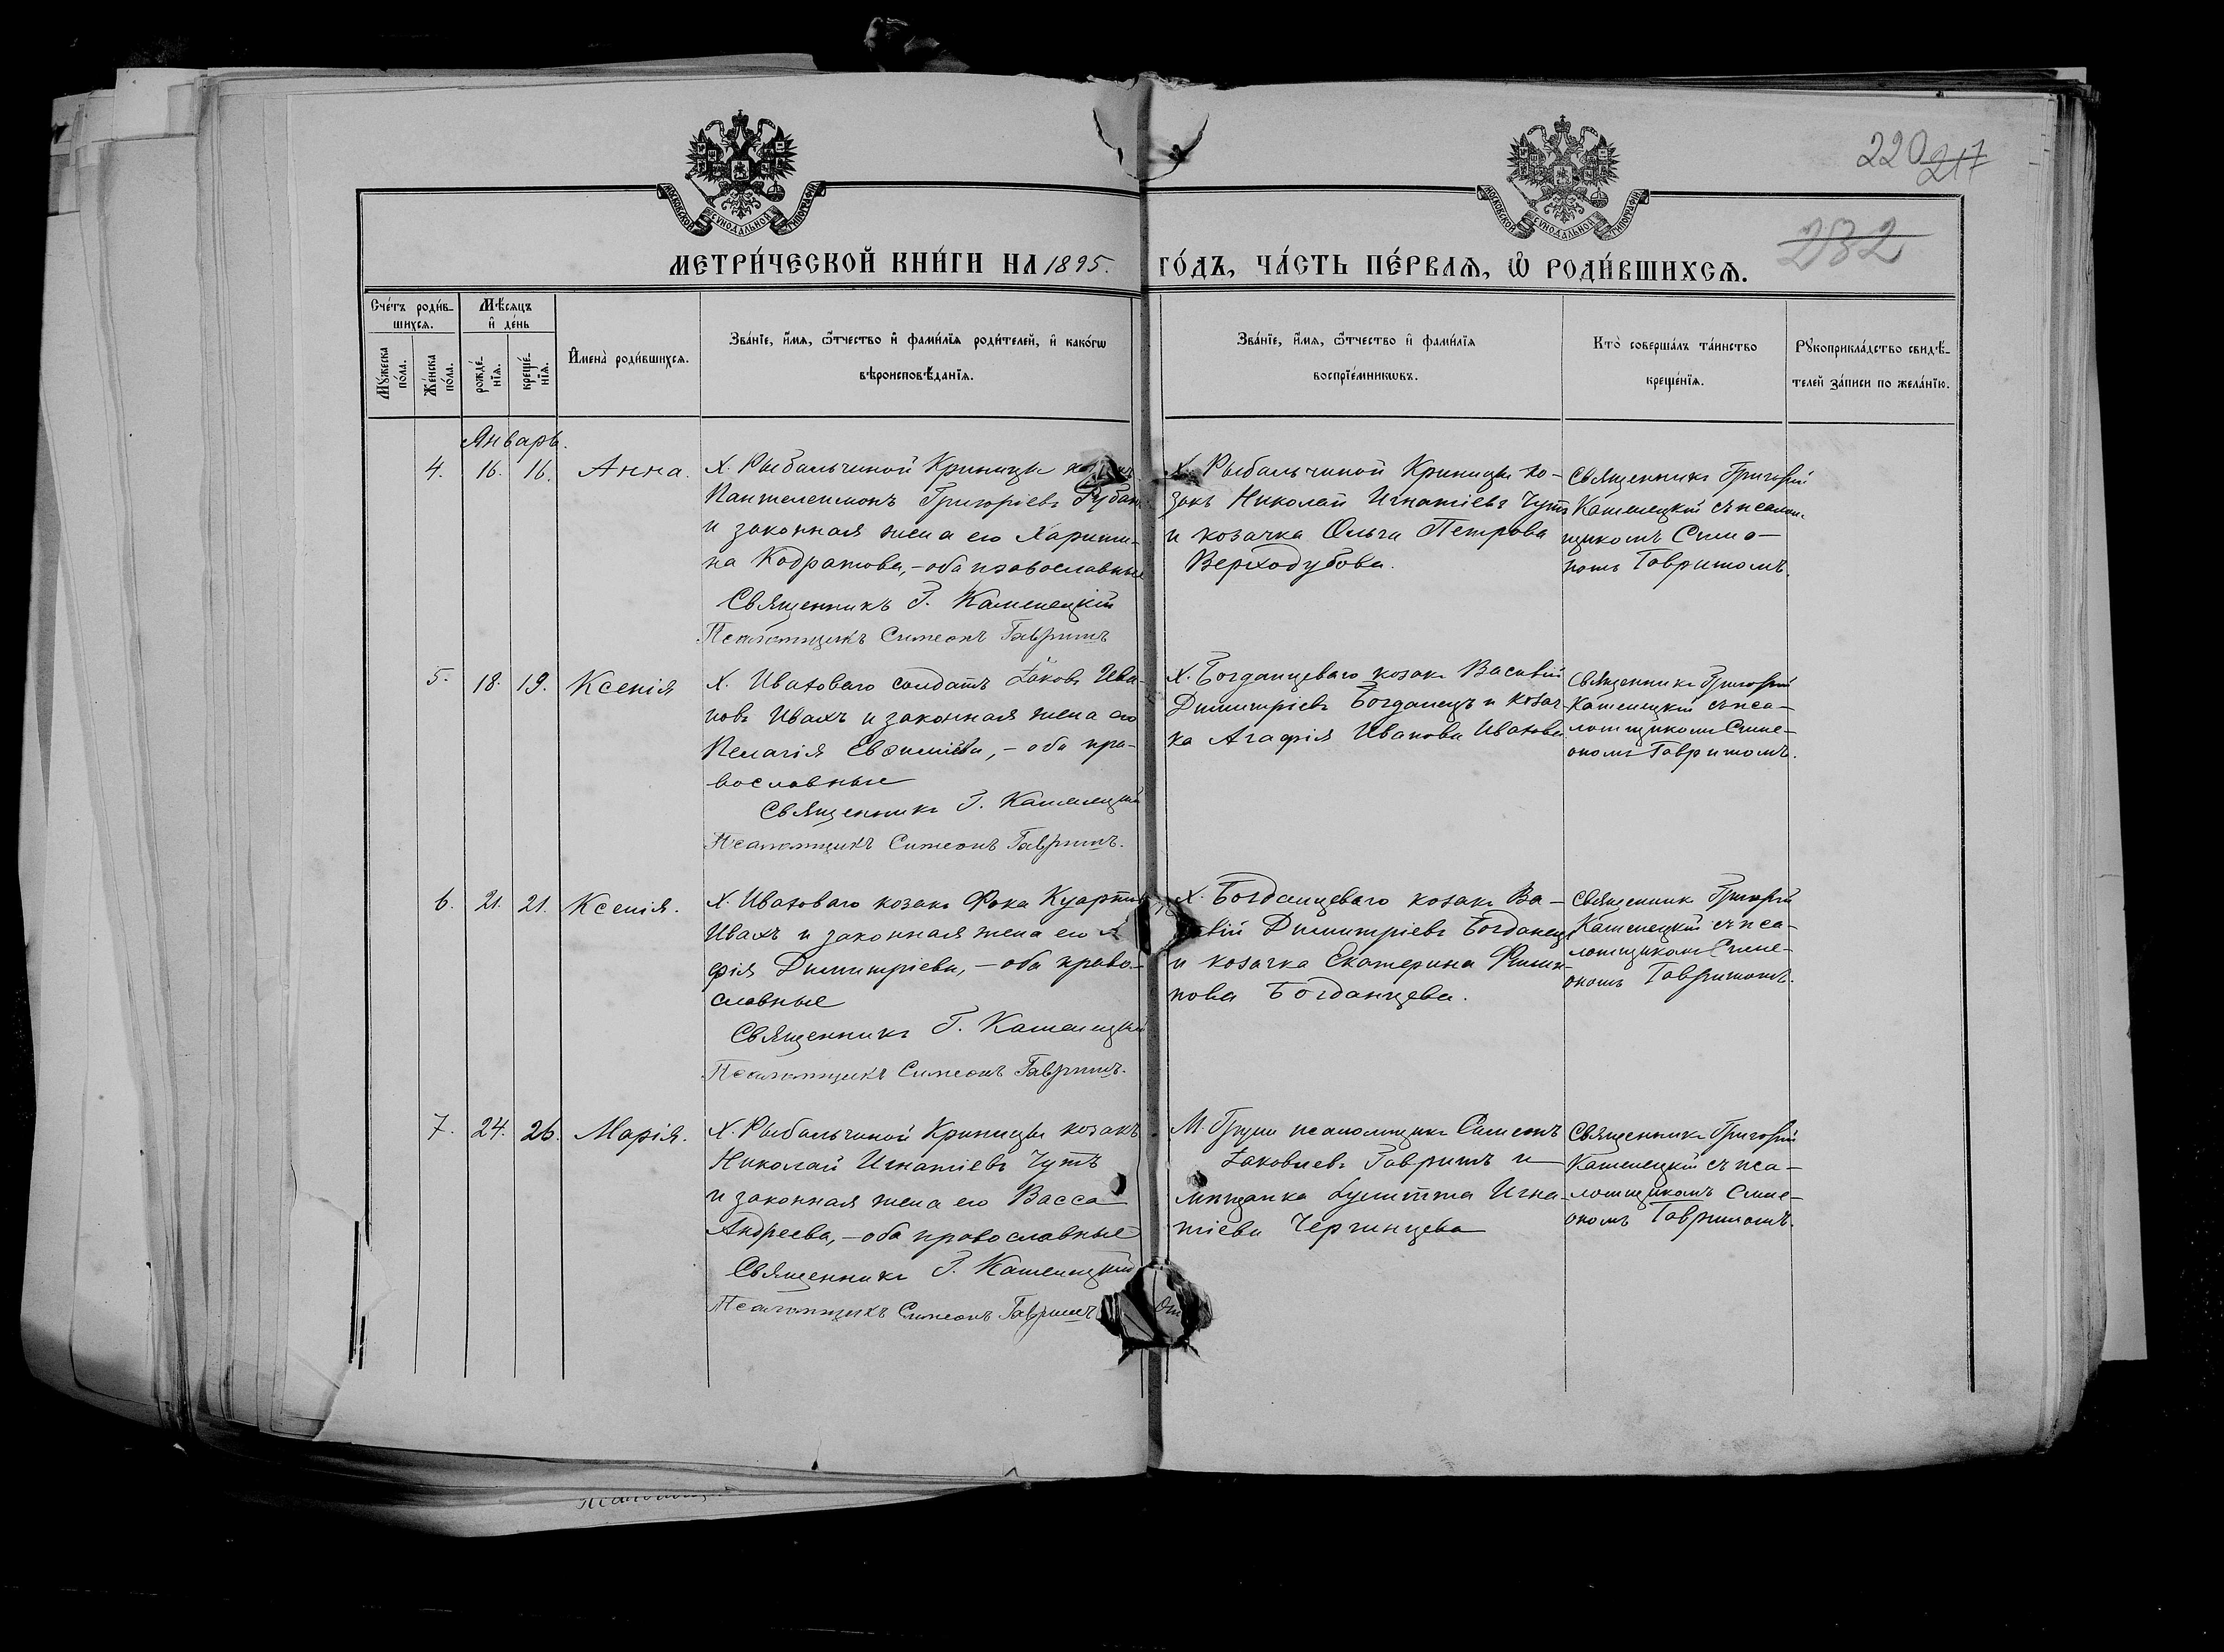 220 217
232
МОСКОВСКОЙ СѴНОДАЛЬНОЙ ТИПОГРАФІИ
МОСКОВСКОЙ СѴНОДАЛЬНОЙ ТИПОГРАФІИ
МЕТРИ́ЧЕСКОЙ КНИ́ГИ НА 1895. ГО́ДЪ, ЧА́СТЬ ПЕ́РВАѦ, Ѽ РОДИ́ВШИХСѦ.
Сче́тъ роди́в-
шихсѧ.
Мꙋ́жеска по́ла.
Же́нска по́ла.
Мѣ́сѧцъ
и҆ де́нь
рожде́-
нїѧ.
креще́-
нїѧ.
И҆мена̀ роди́вшихсѧ.
Зва́нїе, и҆́мѧ, ѻ҆́тчество и҆ фами́лїѧ роди́телей, и҆ како́гѡ
вѣроисповѣ́данїѧ.
Зва́нїе, и҆́мѧ, ѻ҆́тчество и҆ фами́лїѧ
воспрїе́мникѡвъ.
Кто̀ соверша́лъ та́инство
креще́нїѧ.
Рꙋкоприкла́дство свидѣ́-
телей за́писи по жела́нїю.
Январь.
4. 16. 16. Анна.
Х. Рыбальчиной Криницы
Пантелеимонъ Григоріевъ Рубан
и законная жена его Харити-
на Кодратова, – оба православные
Священникъ Г. Каменецкій
Псаломщикъ Симеонъ Гавришъ
Х. Рыбальчиной Криницы ко-
закъ Николай Игнатіевъ Чутъ
и козачка Ольга Петрова
Верходубова.
Священникъ Григорій
Каменецкій съ псалом-
щикомъ Симе-
номъ Гавришомъ.
5. 18. 19. Ксенія
Х. Иваховаго солдатъ Іаковъ Ива-
новъ Ивахъ и законная жена его
Пелагія Евѳиміева, – оба пра-
вославные
Священникъ Г. Каменецкій
Псаломщикъ Симеонъ Гавришъ.
Х. Богданцеваго козакъ Василій
Димитріевъ Богданецъ и козач-
ка Агафія Иванова Ивахова.
Священникъ Григорій
Каменецкій съ пса-
ломщикомъ Симе-
ономъ Гавришомъ.
6. 21. 21. Ксенія.
Х. Иваховаго козакъ Фока Куарті
Ивахъ и законная жена его А
фія Димитріева, – оба право-
славные
Священникъ Г. Каменецкій
Псаломщикъ Симеонъ Гавришъ.
Х. Богданцеваго козакъ Ва-
лій Димитріевъ Богданецъ
и козачка Екатерина Филип-
пова Богданцева.
Священникъ Григорій
Каменецкій съ пса-
ломщикомъ Симе-
ономъ Гавришомъ.
7. 24. 26. Марія.
Х. Рыбальчиной Криницы козакъ
Николай Игнатіевъ Чутъ
и законная жена его Васса
Андреева, – оба православные
Священникъ Г. Каменецкій
Псаломщикъ Симеонъ Гавришъ
М. Груни псаломщикъ Симеонъ
Іаковлевъ Гавришъ и
мѣщанка Іулитта Игна-
тіева Чергинцева
Священникъ Григорій
Каменецкій съ пса-
ломщикомъ Симе-
ономъ Гавришомъ.